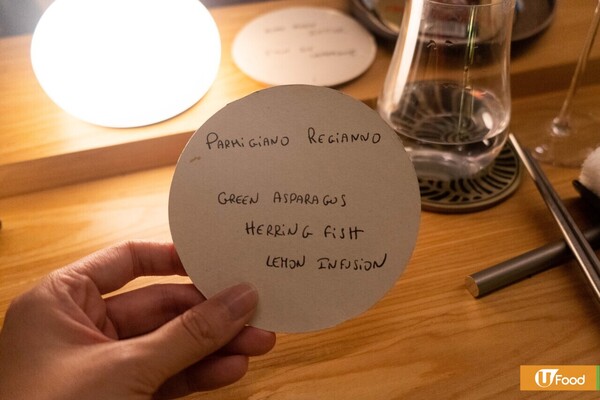 PARMIGIANO REGIANNO
GREEN ASPARAGUS
HERRING FISH
LEMON INFUSION
U Food